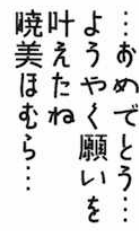 …おめでとう…
ようやく願いを
叶えたね
暁美ほむら…